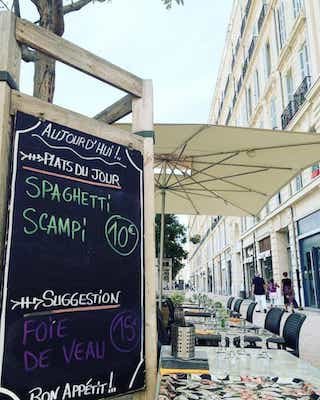 AUJOURD'HUI !..
PLATS DU JOUR
SPAGHETTI
SCAMPI 10€
SUGGESTION
FOIE 15€
DE VEAU
BON APPÉTIT !..